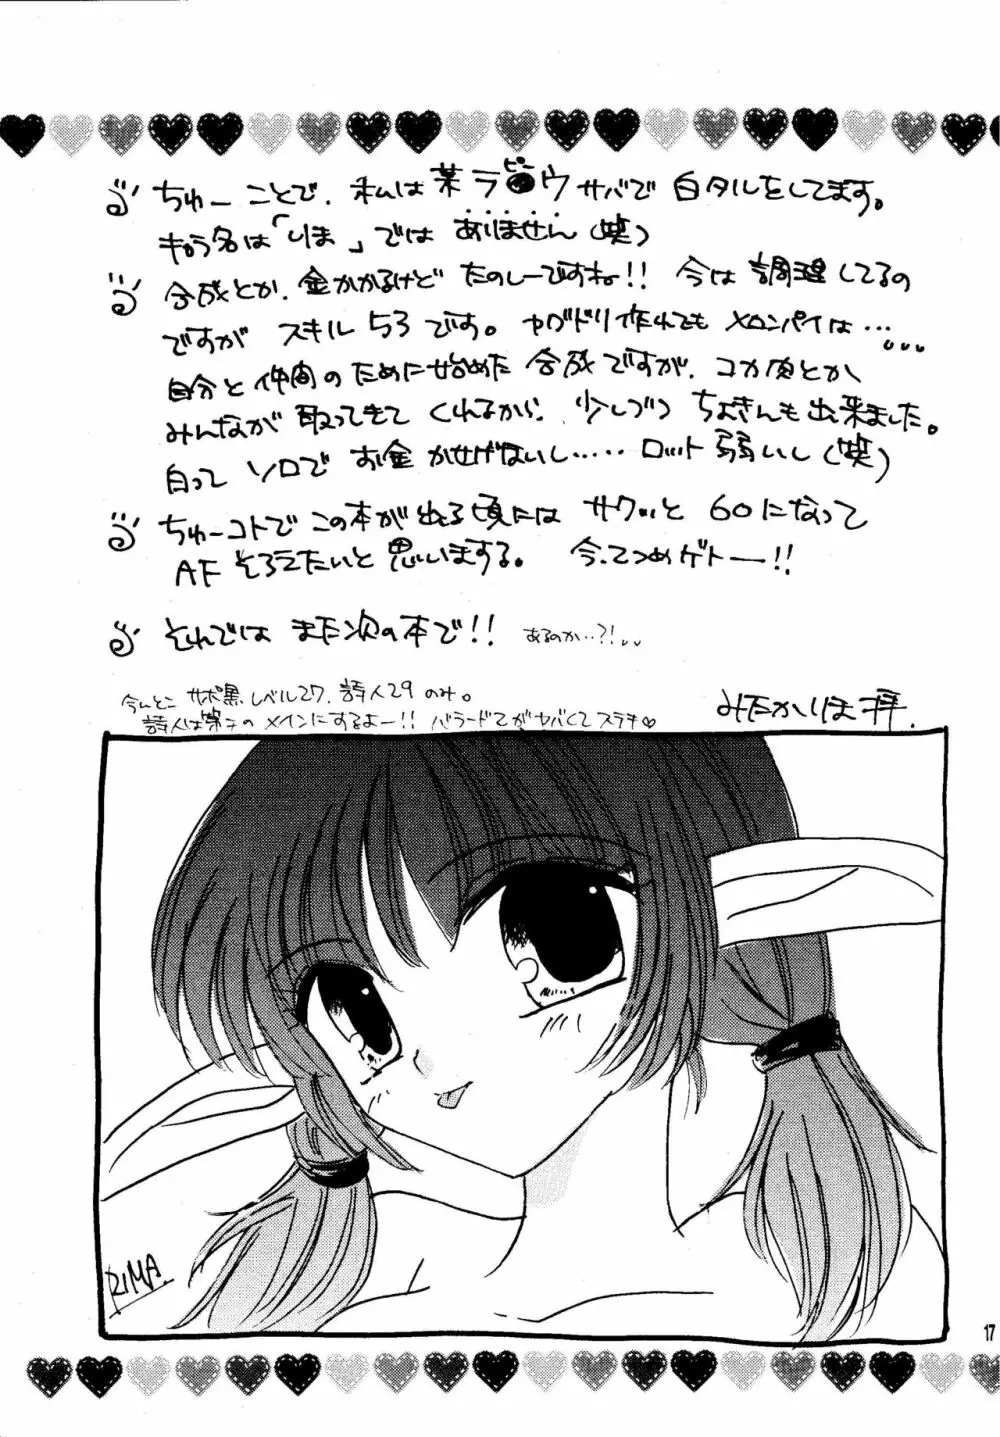 ちゅーことで、私は某ラ●ウサバで白タルをしてます。
ピー
キャラ名は「りま」ではありません(笑)
合成とか、金かかるけどたのしーですね!! 今は調理してるの
ですがスキル53です。ヤグドリ作れてもメロンパイは……
自分と仲間のために始めた合成ですが、コカ肉とか
みんなが取ってきてくれるから、少しづつちょきんも出来ました。
白ってソロでお金かせげないし……ロット弱いし(笑)
ちゅーコトでこの本が出る頃にはサクッと60になって
AFそろえたいと思いまする。 今、てつめゲトー!!
それでは また次の本で!! あるのか…?!
今んとこ サポ黒レベル27、詩人29のみ。
詩人は第二のメインにするよー!! バラードてがヤバくてステキ♡
みたかりま拝.
RIMA.
17